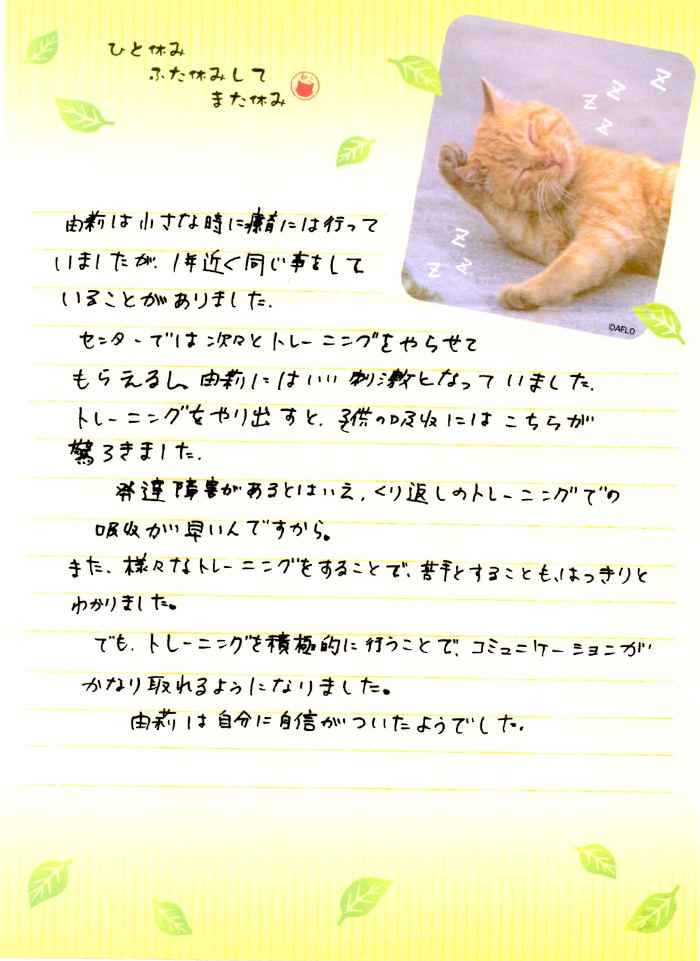 ひと休み
ふた休みして
また休み
ねこ
Z Z Z Z
Z Z Z
©AFLO
由莉は小さな時に療育には行って
いましたが、1年近く同じ事をして
いることがありました。
センターでは次々とトレーニングをやらせて
もらえるし、由莉にはいい刺激となっていました。
トレーニングをやり出すと、子供の吸収にはこちらが
驚ろきました。
発達障害があるとはいえ、くり返しのトレーニングでの
吸収が早いんですから。
また、様々なトレーニングをすることで、苦手とすることも、はっきりと
わかりました。
でも、トレーニングを積極的に行うことで、コミュニケーションが
かなり取れるようになりました。
由莉は自分に自信がついたようでした。